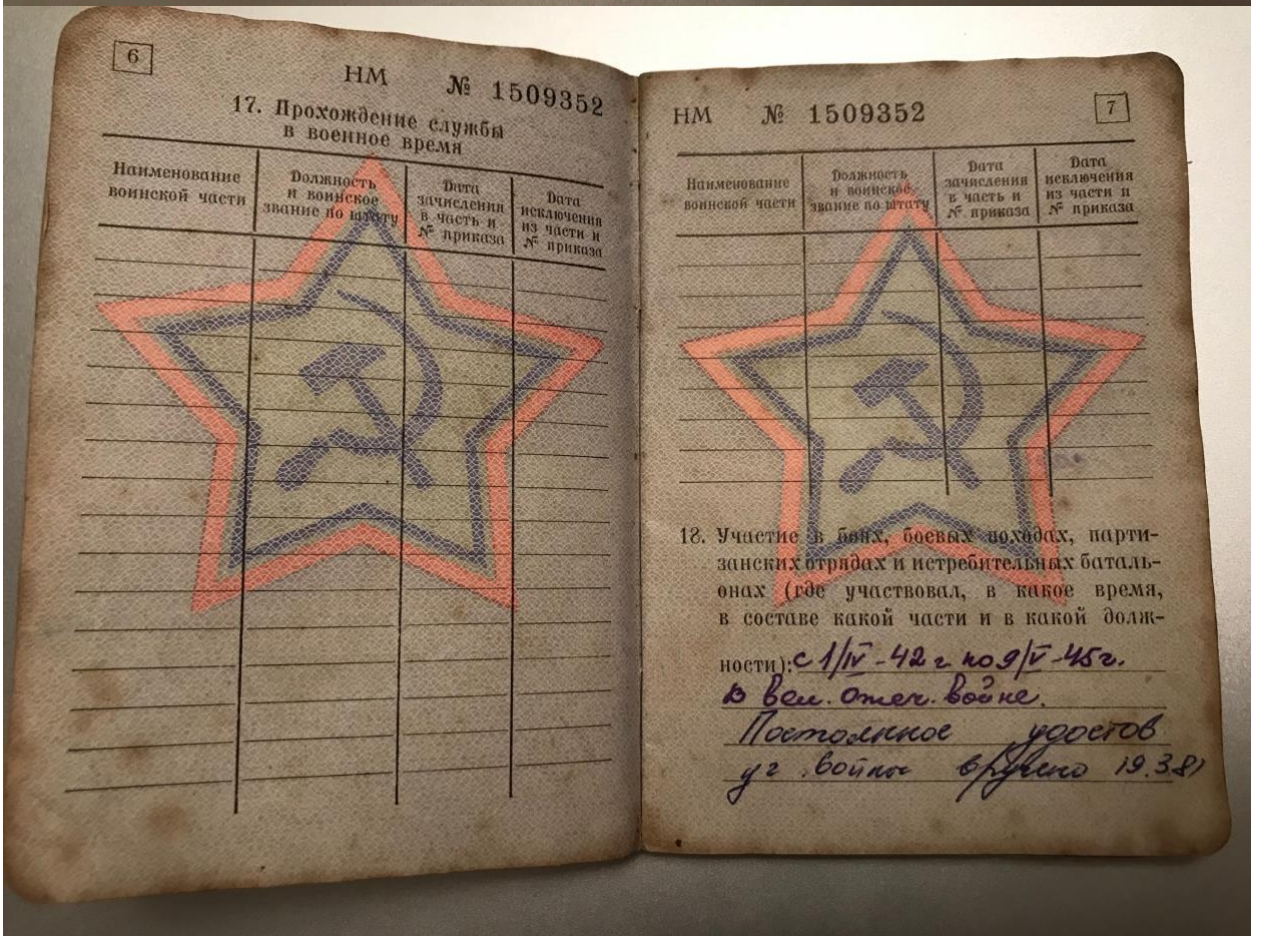 6
НМ № 1509352
17. Прохождение службы
в военное время
Наименование
воинской части
Должность
и воинское
звание по штату
Дата
зачисления
в часть и
№ приказа
Дата
исключения
из части и
№ приказа
НМ № 1509352
7
Наименование
воинской части
Должность
и воинское
звание по штату
Дата
зачисления
в часть и
№ приказа
Дата
исключения
из части и
№ приказа
18. Участие в боях, боевых походах, парти-
занских отрядах и истребительных баталь-
онах (где участвовал, в какое время,
в составе какой части и в какой долж-
ности): с 1/IV-42 г. по 9/V-45 г.
В вел. отеч. войне.
Постоянное удостов
уч. войны вручено 19.3.81